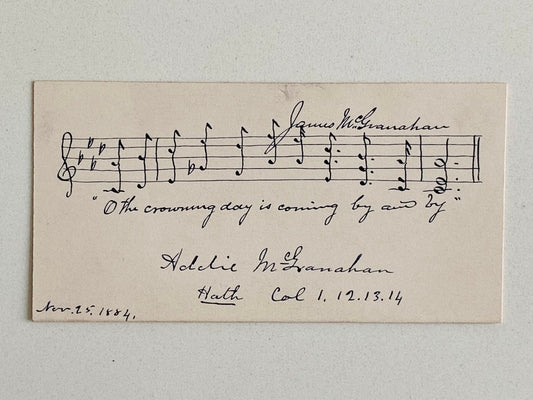 James McGranahan
"O the crowning day is coming by and by"
Addie McGranahan
Hath Col 1. 12.13.14
Nov. 25. 1884.